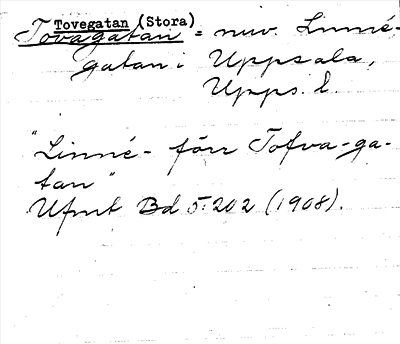 Tovegatan (Stora)
Tovagatan = nuv. Linné-
gatan i Uppsala,
Upps. l.
"Linné- förr Tofva-ga-
tan"
Ufmt Bd 5:202 (1908).